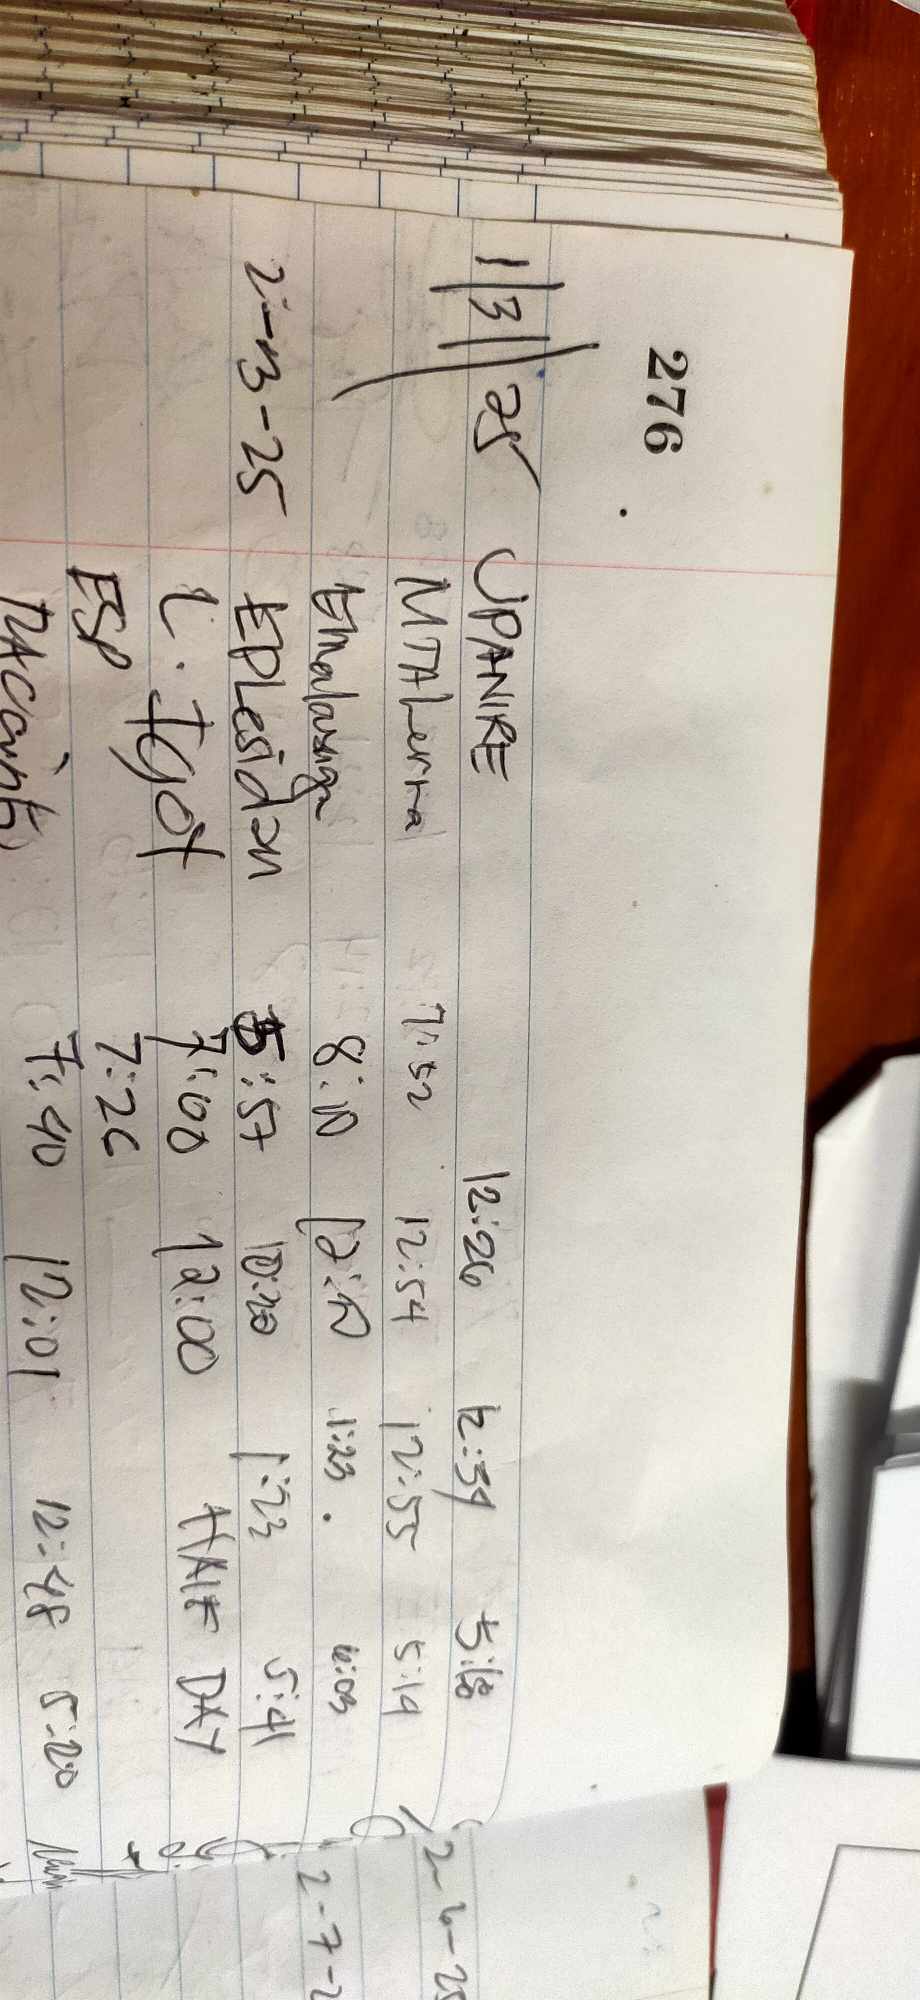 276
1/3/25 JPANIRE 12:26 12:34 5:18
MTALerma 7:52 12:54 12:55 5:19
Emalasiga 8:10 12:10 1:23 6:03
2-13-25 EPLesidan 5:57 10:20 1:23 5:41
L. Igot 7:00 12:00 HALF DAY
ESP 7:26
RACaints 7:40 12:01 12:48 5:20
2-7-2